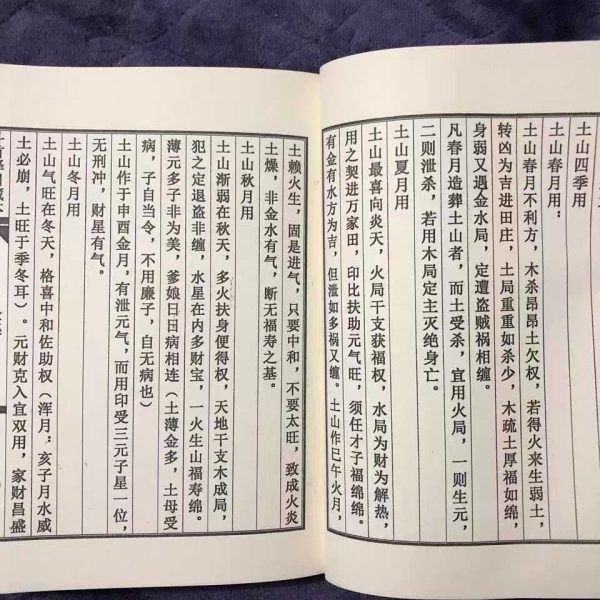 土山四季用
土山春月用：
土山春月不利方，木杀昂昂土欠权，若得火来生弱土，
转凶为吉进田庄，土局重重如杀少，木疏土厚福如绵，
身弱又遇金水局，定遭盗贼祸相缠。
凡春月造葬土山者，而土受杀，宜用火局，一则生元，
二则泄杀，若用木局定主灭绝身亡。
土山夏月用
土山最喜向炎天，火局干支获福权，水局为财为解热，
用之契进万家田，印比扶助元气旺，须任才子福绵绵。
有金有水方为吉，但泄如多祸又缠。土山作巳午火月，
土赖火生，固是进气，只要中和，不要太旺，致成火炎
土燥，非金水有气，断无福寿之基。
土山秋月用
土山渐弱在秋天，多火扶身便得权，天地干支木成局，
犯之定退盗非缠，水星在内多财宝，一火生山福寿绵。
薄元多子非为美，爹娘日日病相连（土薄金多，土母受
病，子自当令，不用廉子，自无病也）
土山作于申酉金月，有泄元气，而用印受三元子星一位，
无刑冲，财星有气。
土山冬月用
土山气旺在冬天，格喜中和佐助权（浑月：亥子月水威
土必崩，土旺于季冬耳）。元财克入宜双用，家财昌盛